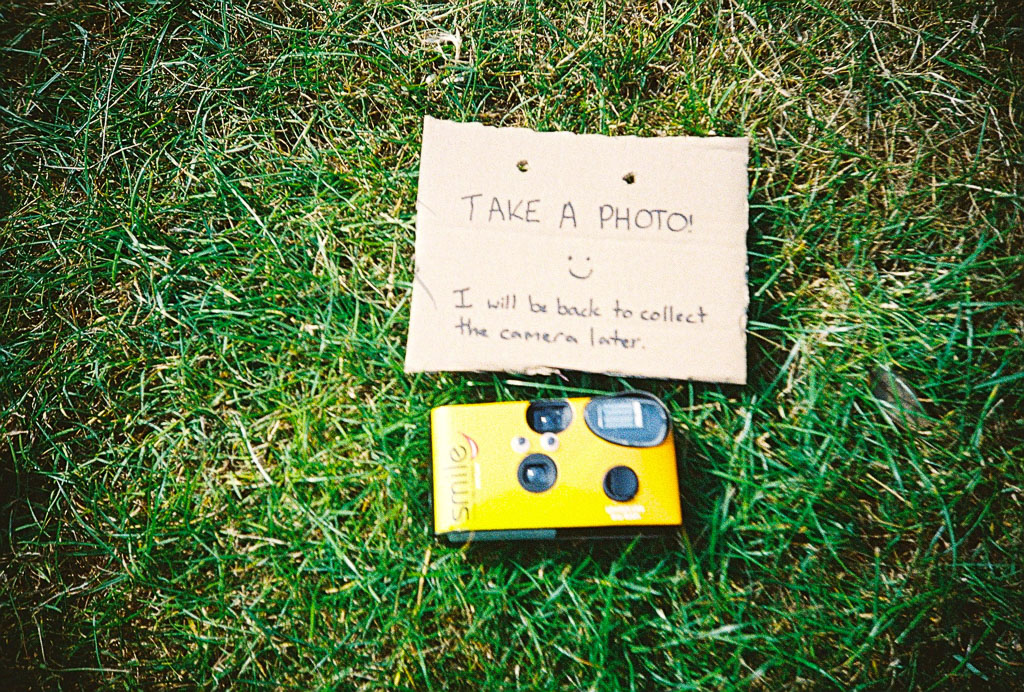 TAKE A PHOTO!
I will be back to collect
the camera later.
smile